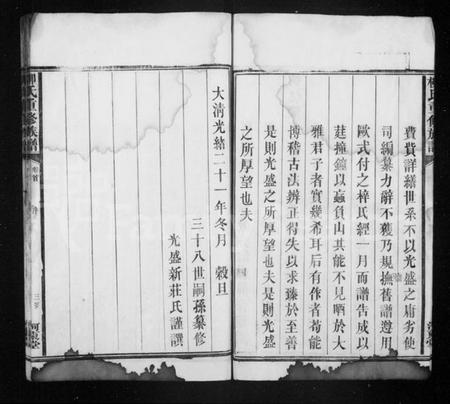 費貲詳繕世系不以光盛之庸劣使
司編纂力辭不獲乃規撫舊譜遵用
歐式付之梓氏經一月而譜告成以
莛撞鐘以蝱負山其能不見哂於大
雅君子者實幾希耳后有作者苟能
博稽古法辨正得失以求臻於至善
是則光盛之所厚望也夫是則光盛
之所厚望也夫
大清光緒二十一年冬月 穀旦
三十八世嗣孫纂修
光盛新莊氏謹譔
氏重修族譜
卷首